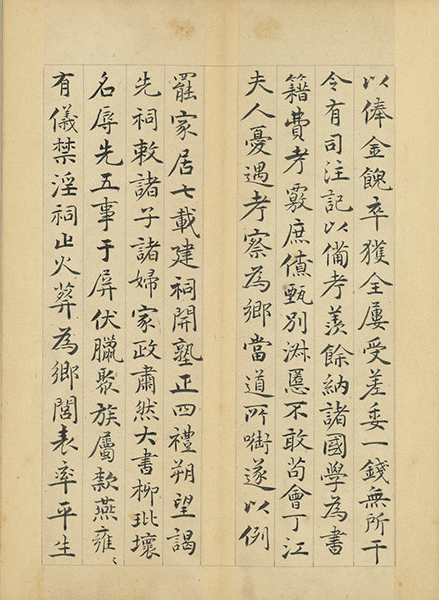 以俸金餽卒獲全屢受差委一錢無所干
令有司注記以備考羨餘納諸國學為書
籍費考覈庶僚甄別淋慝不敢苟會丁江
夫人憂遇考察為鄉當道所啣遂以例
罷家居七載建祠開塾正四禮朔望謁
先祠敕諸子諸婦家政肅然大書柳玭壞
名辱先五事于屏伏臘聚族屬款燕雍〻
有儀禁淫祠止火葬為鄉閭表率平生